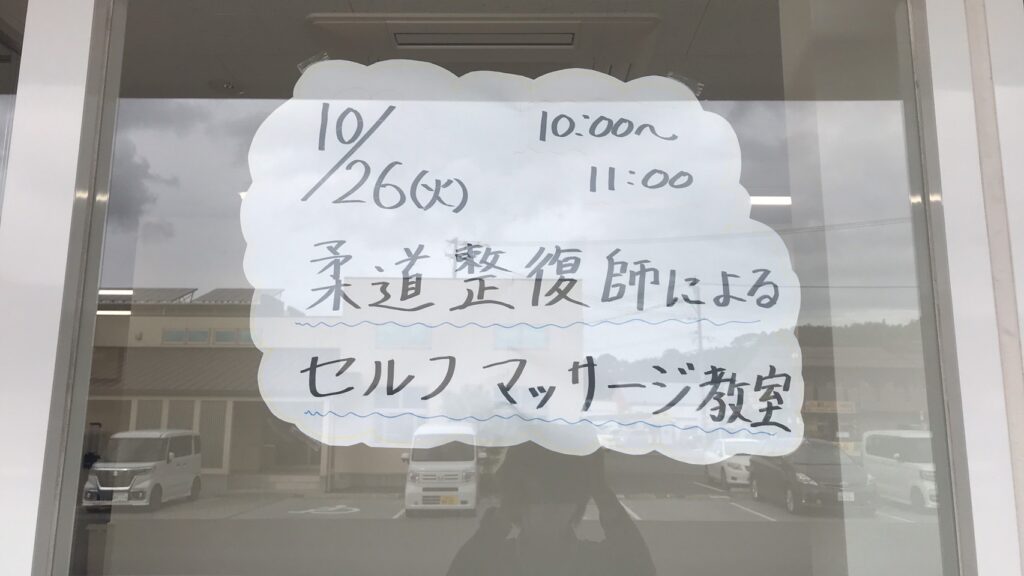 10/26(火) 10:00~
11:00
柔道整復師による
セルフマッサージ教室